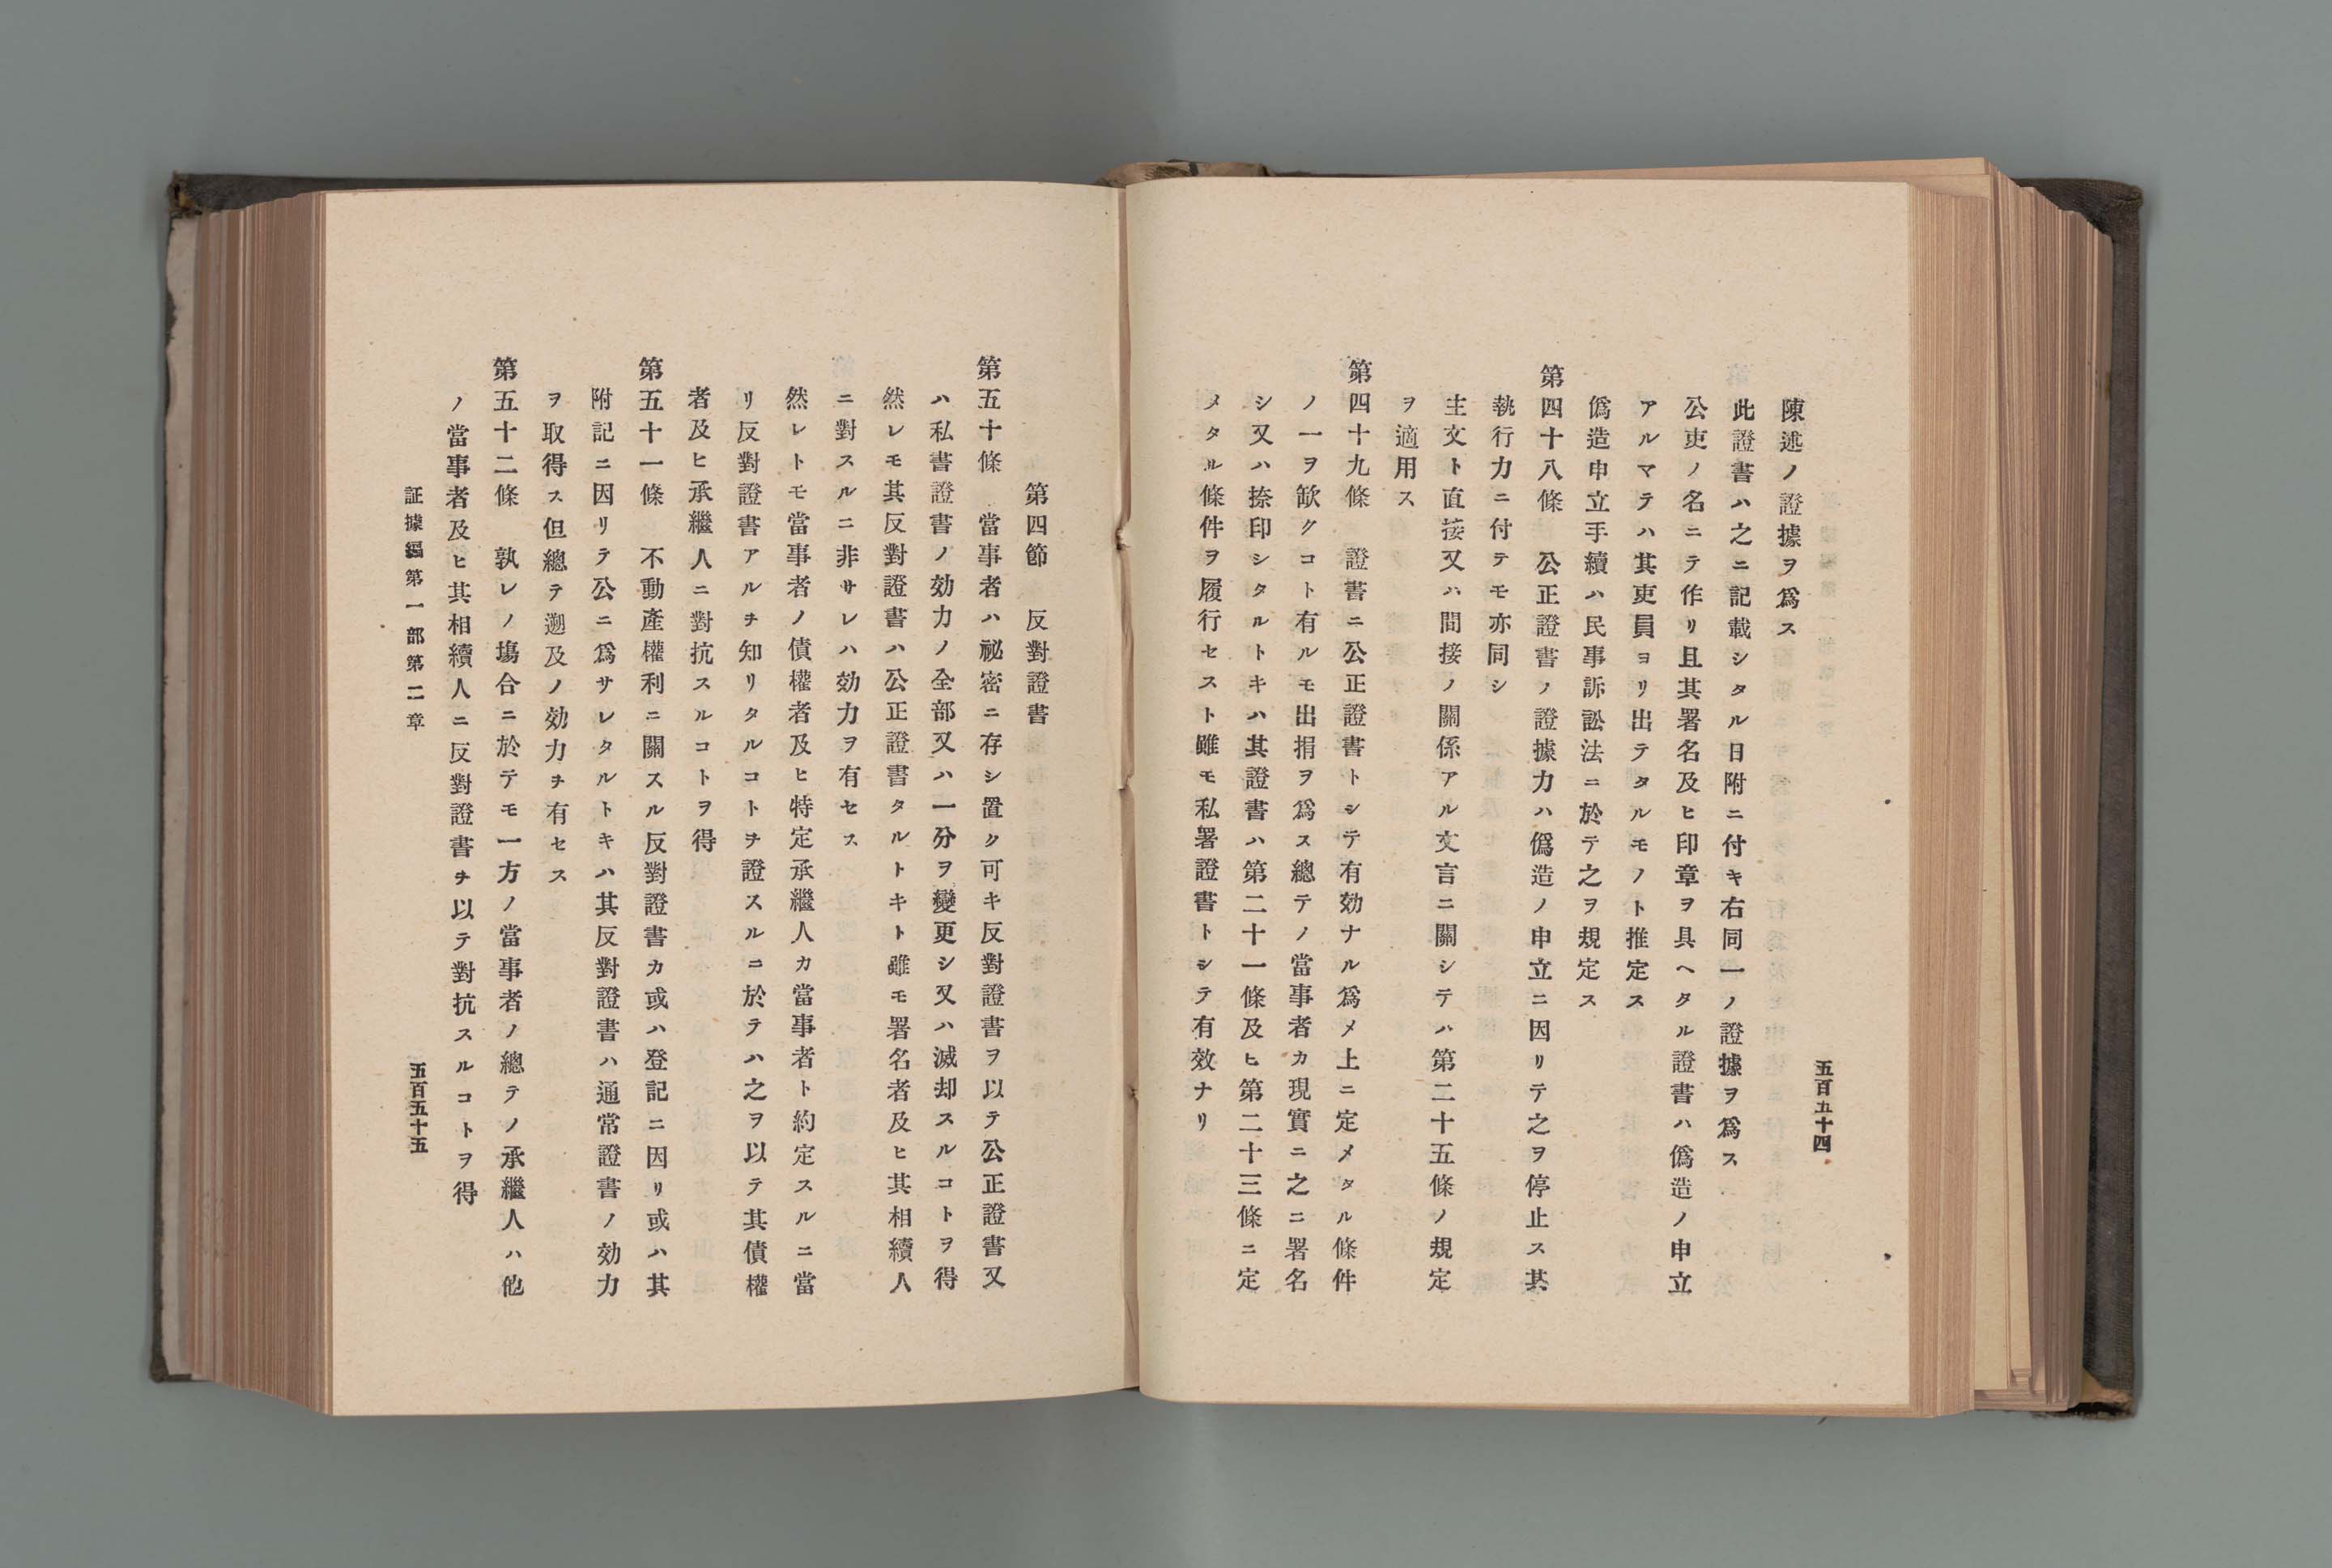 五百五十四
陳述ノ證據ヲ爲ス
此證書ハ之ニ記載シタル日附ニ付キ右同一ノ證據ヲ爲ス
公吏ノ名ニテ作リ且其署名及ヒ印章ヲ具ヘタル證書ハ僞造ノ申立
アルマテハ其吏員ヨリ出テタルモノト推定ス
僞造申立手續ハ民事訴訟法ニ於テ之ヲ規定ス
第四十八條　公正證書ノ證據力ハ僞造ノ申立ニ因リテ之ヲ停止ス其
執行力ニ付テモ亦同シ
主文ト直接又ハ間接ノ關係アル文言ニ關シテハ第二十五條ノ規定
ヲ適用ス
第四十九條　證書ニ公正證書トシテ有効ナル爲メ上ニ定メタル條件
ノ一ヲ缺クコト有ルモ出捐ヲ爲ス總テノ當事者カ現實ニ之ニ署名
シ又ハ捺印シタルトキハ其證書ハ第二十一條及ヒ第二十三條ニ定
メタル條件ヲ履行セスト雖モ私署證書トシテ有效ナリ
第四節　反對證書
第五十條　當事者ハ祕密ニ存シ置ク可キ反對證書ヲ以テ公正證書又
ハ私書證書ノ効力ノ全部又ハ一分ヲ變更シ又ハ滅却スルコトヲ得
然レモ其反對證書ハ公正證書タルトキト雖モ署名者及ヒ其相續人
ニ對スルニ非サレハ効力ヲ有セス
然レトモ當事者ノ債權者及ヒ特定承繼人カ當事者ト約定スルニ當
リ反對證書アルヲ知リタルコトヲ證スルニ於テハ之ヲ以テ其債權
者及ヒ承繼人ニ對抗スルコトヲ得
第五十一條　不動產權利ニ關スル反對證書カ或ハ登記ニ因リ或ハ其
附記ニ因リテ公ニ爲サレタルトキハ其反對證書ハ通常證書ノ効力
ヲ取得ス但總テ遡及ノ効力ヲ有セス
第五十二條　孰レノ塲合ニ於テモ一方ノ當事者ノ總テノ承繼人ハ他
ノ當事者及ヒ其相續人ニ反對證書ヲ以テ對抗スルコトヲ得
証據編第一部第二章
五百五十五